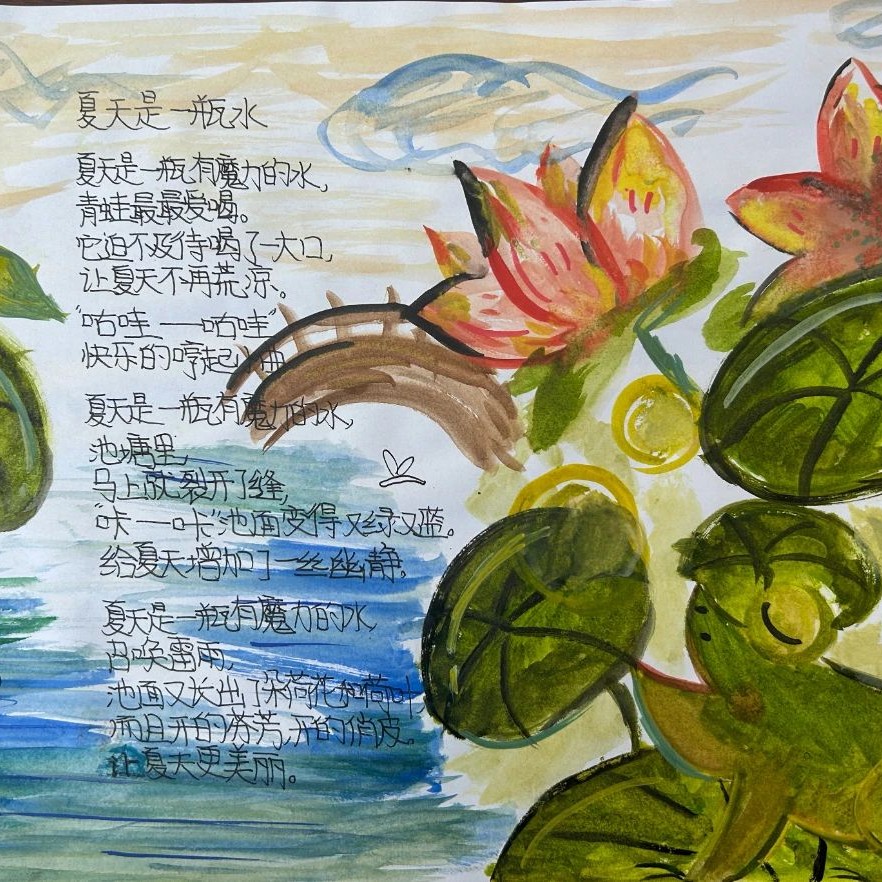 夏天是一瓶水
夏天是一瓶有魔力的水，
青蛙最最爱喝。
它迫不及待喝了一大口，
让夏天不再荒凉。
“咕哇——咕哇”
快乐的哼起小曲
夏天是一瓶有魔力的水，
池塘里，
马上就裂开了缝，
“咔——咔”池面变得又绿又蓝。
给夏天增加了一丝幽静。
夏天是一瓶有魔力的水，
召唤雷雨，
池面又长出了朵荷花和荷叶，
而且开的芬芳，开的俏皮。
让夏天更美丽。